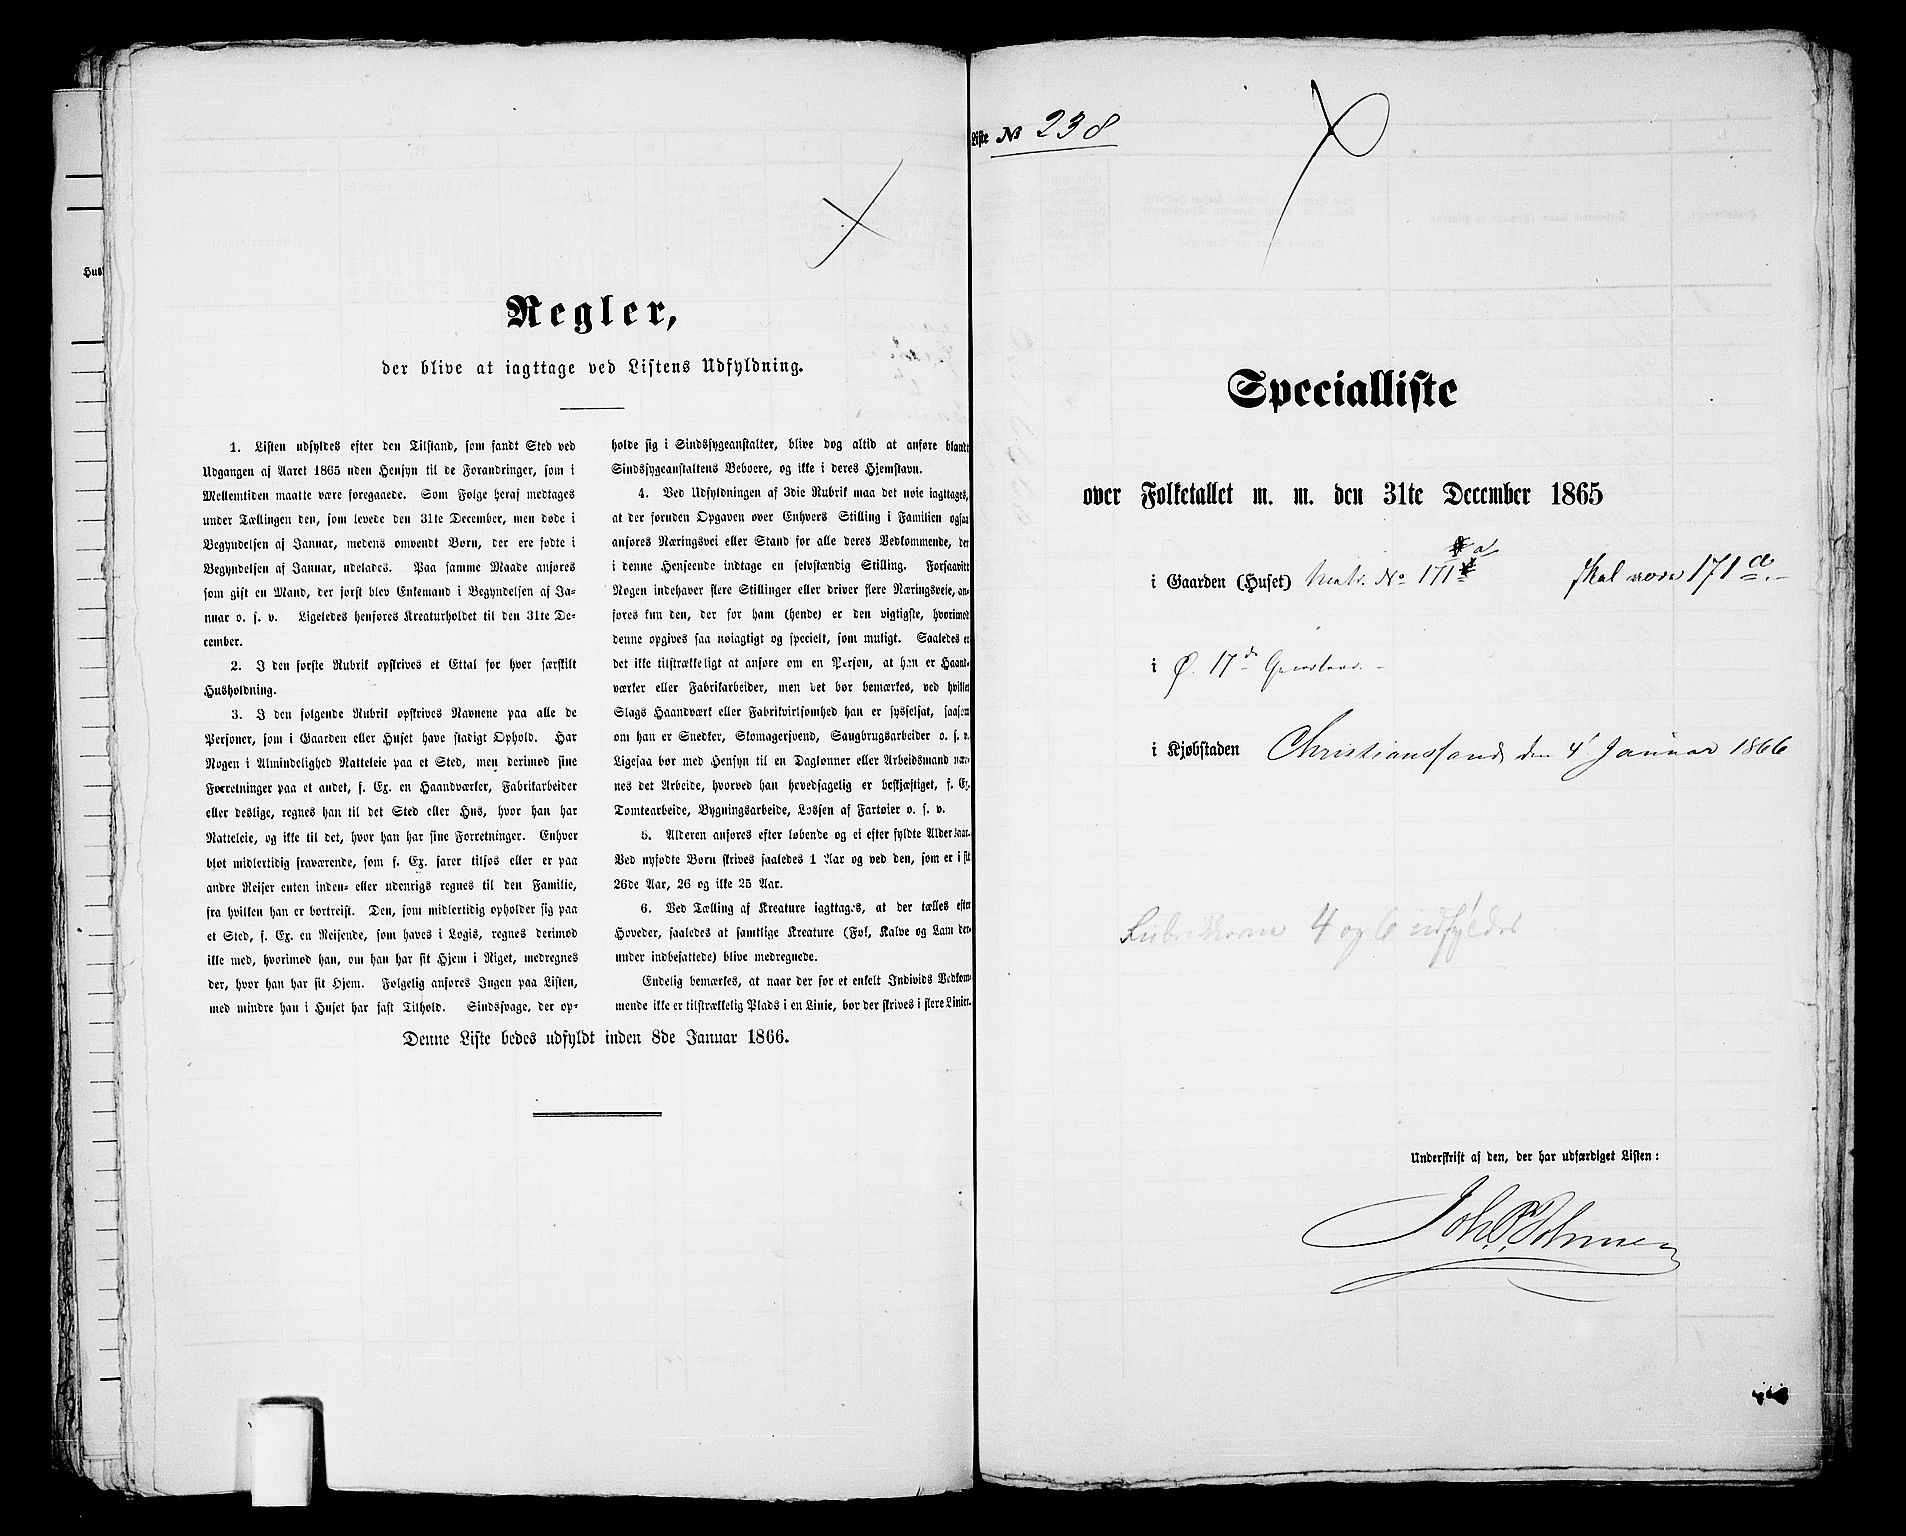 Regler,
der blive at iagttage ved Listens Udfyldning.
1. Listen udfyldes efter den Tilstand, som fandt Sted ved
Udgangen af Aaret 1865 uden Hensyn til de Forandringer, som i
Mellemtiden maatte være foregaaede. Som Følge heraf medtages
under Tællingen den, som levede den 31te December, men døde i
Begyndelsen af Januar, medens omvendt Børn, der ere fødte i
Begyndelsen af Januar, udelades. Paa samme Maade anføres
som gift en Mand, der først blev Enkemand i Begyndelsen af Ja-
nuar o. s. v. Ligeledes henføres Kreaturholdet til den 31te De-
cember.
2. I den første Rubrik opskrives et Ettal for hver særskilt
Husholdning.
3. I den følgende Rubrik opskrives Navnene paa alle de
Personer, som i Gaarden eller Huset have stadigt Ophold. Har
Nogen i Almindelighed Natteleie paa et Sted, men derimod sine
Forretninger paa et andet, f. Ex. en Haandværker, Fabrikarbeider
eller deslige, regnes han til det Sted eller Hus, hvor han har
Natteleie, og ikke til det, hvor han har sine Forretninger. Enhver
blot midlertidig fraværende, som f. Ex. farer tilsøs eller er paa
andre Reiser enten inden- eller udenrigs regnes til den Familie,
fra hvilken han er bortreist. Den, som midlertidig opholder sig paa
et Sted, f. Ex. en Reisende, som haves i Logis, regnes derimod
ikke med, hvorimod han, om han har sit Hjem i Riget, medregnes
der, hvor han har sit Hjem. Følgelig anføres Ingen paa Listen,
med mindre han i Huset har fast Tilhold. Sindssvage, der op-
holde sig i Sindssygeanstalter, blive dog altid at anføre blandt
Sindssygeanstaltens Beboere, og ikke i deres Hjemstavn.
4. Ved Udfyldningen af 3die Rubrik maa det nøie iagttages,
at der foruden Opgaven over Enhvers Stilling i Familien ogsaa
anføres Næringsvei eller Stand for alle deres Vedkommende, der
i denne Henseende indtage en selvstændig Stilling. Forsaavitt
Nogen indehaver flere Stillinger eller driver flere Næringsveie, an-
føres kun den, der for ham (hende) er den vigtigste, hvorimod
denne opgives saa nøiagtigt og specielt, som muligt. Saaledes er
det ikke tilstrækkeligt at anføre om en Person, at han er Haand-
værker eller Fabrikarbeider, men det bør bemærkes, ved hvilket
Slags Haandværk eller Fabrikvirksomhed han er sysselsat, saasom
om han er Snedker, Skomagersvend, Saugbrugsarbeider o. s. v.
Ligesaa bør med Hensyn til en Daglønner eller Arbeidsmand næv-
nes det Arbeide, hvorved han hovedsagelig er beskjæftiget, f. Ex.
Tomtearbeide, Bygningsarbeide, Losjen af Fartøier o. s. v.
5. Alderen anføres efter løbende og ei efter fyldte Aldersaar.
Ved nyfødte Børn skrives saaledes 1 Aar og ved den, som er i sit
26de Aar, 26 og ikke 25 Aar.
6. Ved Tælling af Kreature iagttages, at der tælles efter
Hoveder, saaledes at samtlige Kreature (Føl, Kalve og Lam der-
under indbefattede) blive medregnede.
Endelig bemærkes, at naar der for et enkelt Individs Vedkom-
mende ikke er tilstrækkelig Plads i en Linie, bør der skrives i flere Linier.
Denne Liste bedes udfyldt inden 8de Januar 1866.
Liste № 238
Specialliste
over Folketallet m. m. den 31te December 1865
i Gaarden (Huset) Matr. No 171 a skal være 171 a.
i 17de
i Kjøbstaden Christianssand, den 4' Januar 1866
Rubrikkerne 4 og 6 udfyldes
Underskrift af den, der har udfærdiget Listen: